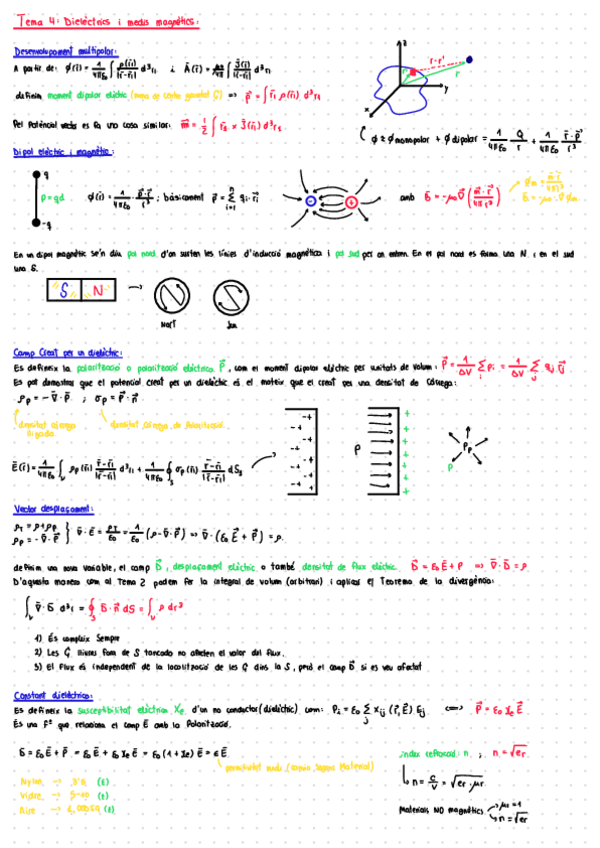 Tema 4: Dielèctrics i medis magnètics:
Desenvolupament multipolar:
A partir de: φ(r̄) = 1/4πε₀ ∫ ρ(r̄₁)/|r̄-r̄₁| d³r₁ i Ā(r̄) = μ₀/4π ∫ J̄(r̄₁)/|r̄-r̄₁| d³r₁
z
r-r'
r
y
x
definim moment dipolar elèctric => p̄ = ∫ r̄₁ ρ(r̄₁) d³r₁
Pel Potencial es fa una cosa similar: m̄ = 1/2 ∫ r̄₁ × J̄(r̄₁) d³r₁
φ ≈ φmonopolar + φdipolar = 1/4πε₀ Q/r + 1/4πε₀ r̄·p̄/r³
Dipol elèctric i magnètic:
q
p=qd
-q
φ(r̄) = 1/4πε₀ p̄·r̄/r³ ; bàsicament p̄ = Σ qᵢ·r̄ᵢ
- +
amb B̄ = -μ₀ ∇̄ (m̄·r̄/4πr³)
φm = m̄·r̄/4πr³
B̄ = -μ₀·∇̄φm
En un dipol magnètic se'n diu pol nord d'on surten les línies d'inducció magnètica i pol sud per on entren. En el pol nord es forma una N i en el sud
una S.
S N
Nort
Sud
Camp Creat per un dielèctric:
Es defineix la polarització o polarització elèctrica P̄, com el moment dipolar elèctric per unitats de volum: P̄ = 1/ΔV Σ pᵢ = 1/ΔV Σ qⱼ r̄ⱼ
Es pot demostrar que el potencial creat per un dielèctric és el mateix que el creat per una densitat de càrrega:
ρp = -∇̄·P̄ ; σp = P̄·n̄
densitat càrrega
lligada
densitat càrrega de Polarització
Ē(r̄) = 1/4πε₀ ∫ ρp(r̄₁) r̄-r̄₁/|r̄-r̄₁| d³r₁ + 1/4πε₀ ∮ σp(r̄₁) r̄-r̄₁/|r̄-r̄₁| dS₁
P
ρp
P
Vector desplaçament:
ρT = ρ+ρp
ρp = -∇̄·P̄
∇̄·Ē = ρT/ε₀ = 1/ε₀ (ρ-∇̄·P̄) => ∇̄·(ε₀Ē + P̄) = ρ.
definim una nova variable, el camp D̄, desplaçament elèctric o també densitat de flux elèctric. D̄ = ε₀Ē + P̄ => ∇̄·D̄ = ρ.
D'aquesta manera com al Tema 2 podem fer la integral de volum (arbitrari) i aplicar el Teorema de la divergència:
∫ ∇̄·D̄ d³r = ∮ D̄·n̄ dS = ∫ ρ dr³
1) És compleix Sempre
2) Les Q lliures fora de S tancada no afecten el valor del flux.
3) El Flux és independent de la localització de les Q dins la S, però el camp D̄ si es veu afectat
Constant dielèctrica:
Es defineix la susceptibilitat elèctrica χe d'un no conductor (dielèctric) com: Pᵢ = ε₀ Σ χᵢⱼ (r̄,Ē) Eⱼ <=> P̄ = ε₀ χe Ē
És una Fº que relaciona el camp Ē amb la Polarització.
D̄ = ε₀Ē + P̄ = ε₀Ē + ε₀ χe Ē = ε₀(1+χe) Ē = εĒ
permitivitat medi
índex refracció: n ; n = √εr
n = c/v = √εr·μr
Nylon → 3'9 (ε)
Vidre → 5-10 (ε)
Aire → 1,00059 (ε)
Materials NO magnètics
μr=1
n=√εr